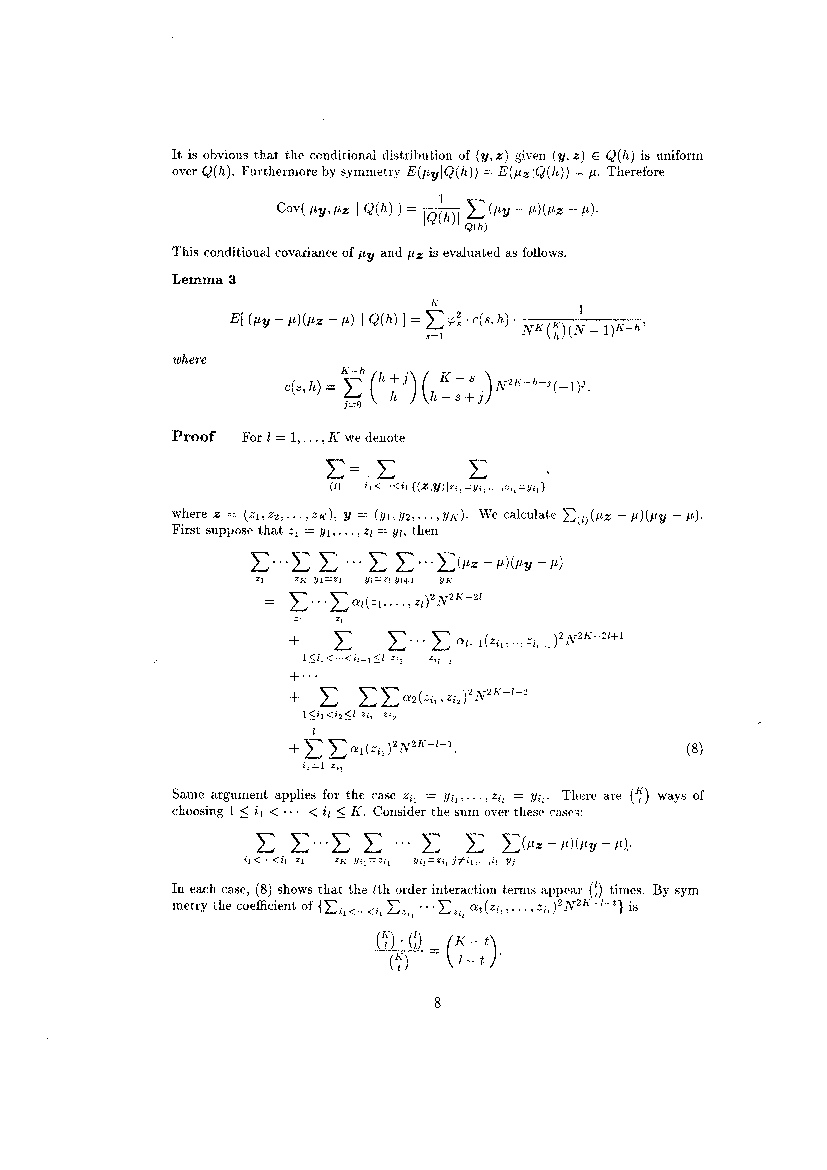 It is obvious that the conditional distribution of (y, z) given (y, z) ∈ Q(h) is uniform
over Q(h). Furthermore by symmetry E(μ_y|Q(h)) = E(μ_z|Q(h)) = μ. Therefore
Cov( μ_y, μ_z | Q(h) ) = 1/|Q(h)| ∑_{Q(h)} (μ_y − μ)(μ_z − μ).
This conditional covariance of μ_y and μ_z is evaluated as follows.
Lemma 3
E[ (μ_y − μ)(μ_z − μ) | Q(h) ] = ∑_{s=1}^{K} φ_s^2 · c(s, h) · 1/(N^K (K choose h)(N − 1)^{K−h}),
where
c(s, h) = ∑_{j=0}^{K−h} (h + j choose h)(K − s choose h − s + j) N^{2K−h−j}(−1)^j.
Proof For l = 1, . . . , K we denote
∑_{(l)} = ∑_{i_1<···<i_l} ∑_{{(z,y)|z_{i_1}=y_{i_1},...,z_{i_l}=y_{i_l}}} ,
where z = (z_1, z_2, . . . , z_K), y = (y_1, y_2, . . . , y_K). We calculate ∑_{(l)}(μ_z − μ)(μ_y − μ).
First suppose that z_1 = y_1, . . . , z_l = y_l, then
∑_{z_1} ··· ∑_{z_K} ∑_{y_1=z_1} ··· ∑_{y_l=z_l} ∑_{y_{l+1}} ··· ∑_{y_K} (μ_z − μ)(μ_y − μ)
= ∑_{z_1} ··· ∑_{z_l} α_l(z_1, . . . , z_l)^2 N^{2K−2l}
+ ∑_{1≤i_1<···<i_{l−1}≤l} ∑_{z_{i_1}} ··· ∑_{z_{i_{l−1}}} α_{l−1}(z_{i_1}, .., z_{i_{l−1}})^2 N^{2K−2l+1}
+ ···
+ ∑_{1≤i_1<i_2≤l} ∑_{z_{i_1}} ∑_{z_{i_2}} α_2(z_{i_1}, z_{i_2})^2 N^{2K−l−2}
+ ∑_{i_1=1}^{l} ∑_{z_{i_1}} α_1(z_{i_1})^2 N^{2K−l−1}. (8)
Same argument applies for the case z_{i_1} = y_{i_1}, . . . , z_{i_l} = y_{i_l}. There are (K choose l) ways of
choosing 1 ≤ i_1 < ··· < i_l ≤ K. Consider the sum over these cases:
∑_{i_1<···<i_l} ∑_{z_1} ··· ∑_{z_K} ∑_{y_{i_1}=z_{i_1}} ··· ∑_{y_{i_l}=z_{i_l}} ∑_{j≠i_1,...,i_l} ∑_{y_j} (μ_z − μ)(μ_y − μ).
In each case, (8) shows that the tth order interaction terms appear (l choose t) times. By sym
metry the coefficient of {∑_{i_1<···<i_t} ∑_{z_{i_1}} ··· ∑_{z_{i_t}} α_t(z_{i_1}, . . . , z_{i_t})^2 N^{2K−l−t}} is
(K choose l) · (l choose t) / (K choose t) = (K − t choose l − t).
8